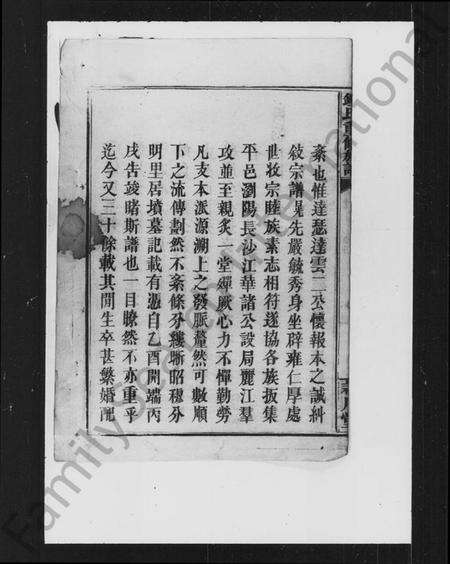 紊也惟達慧達雲二公懷報本之誠糾
敍宗譜晁先嚴毓秀身坐辟雍仁厚處
世收宗睦族素志相符遂協各族扳集
平邑瀏陽長沙江華諸公設局麗江羣
攻並至親炙一堂殫厥心力不憚勤勞
凡支本派源溯上之發脈釐然可數順
下之流傳劃然不紊條分縷晰昭穆分
明里居墳墓記載有憑自乙酉開端丙
戌告竣睹斯譜也一目瞭然不亦重乎
迄今又三十餘載其間生卒甚繁婚配
Family search International